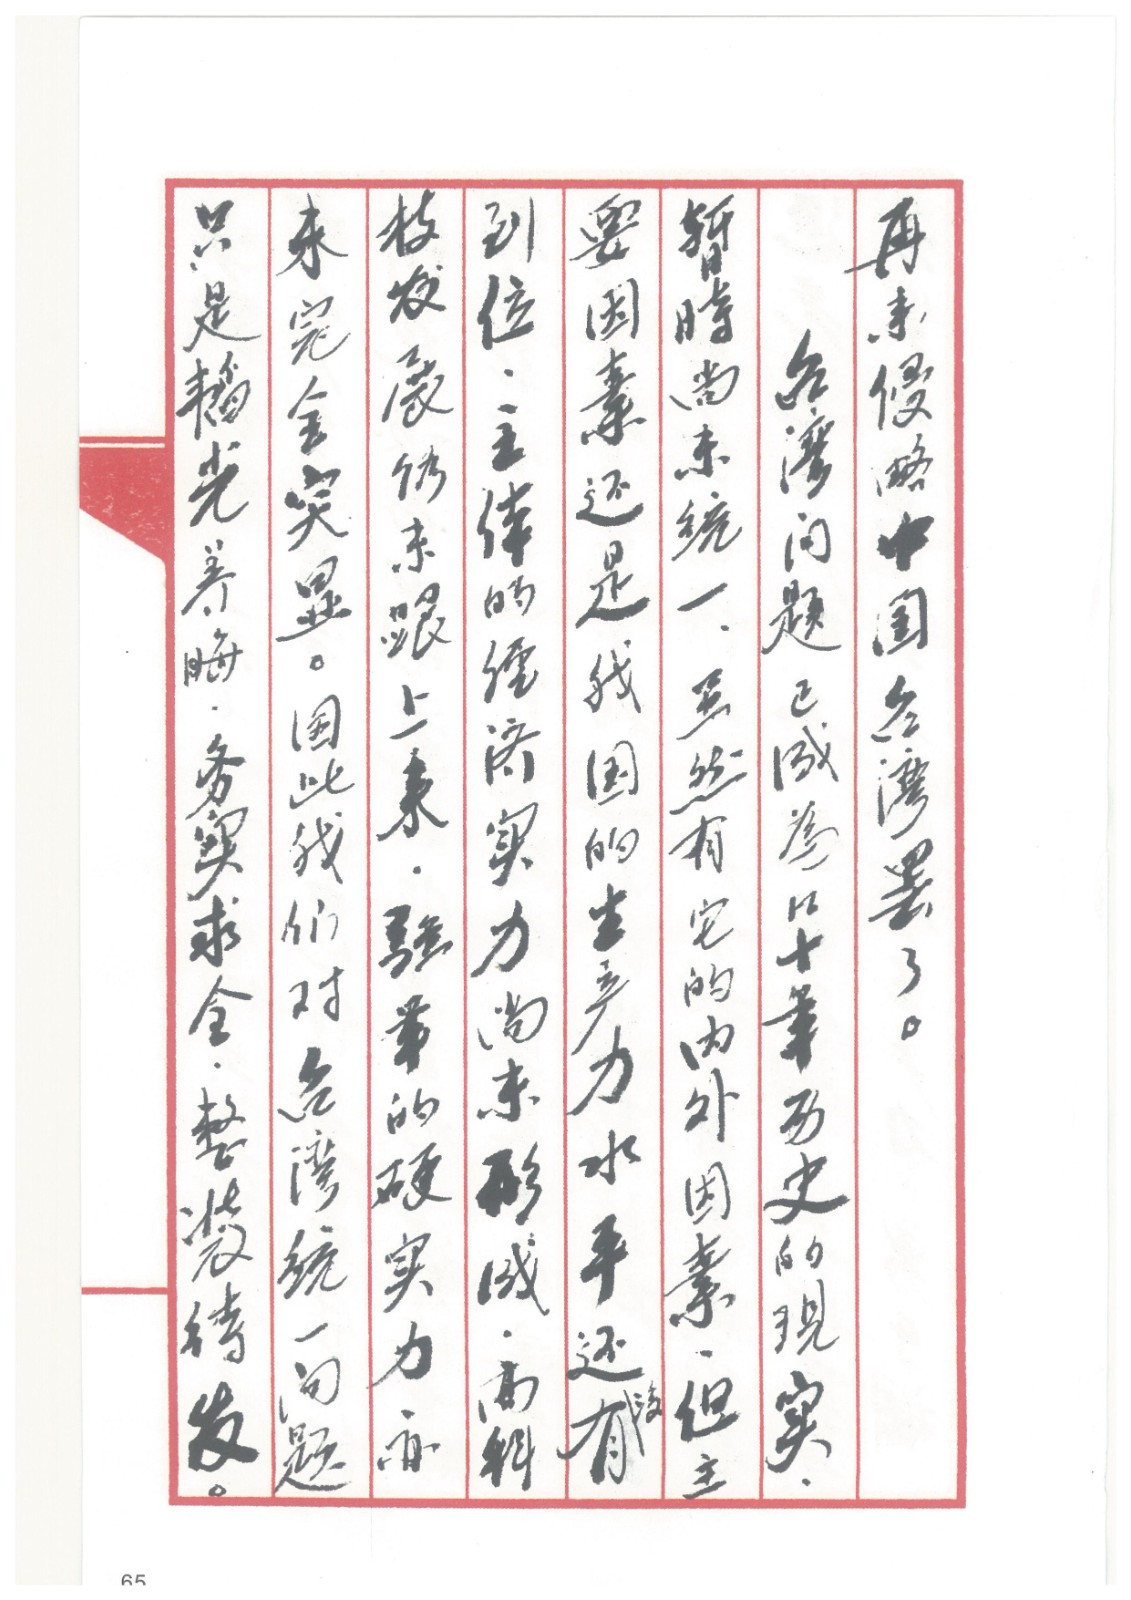 再来侵略中国台湾罢了。
台湾问题已成為几十年历史的現实、
暫時尚未統一、虽然有它的内外因素、但主
要因素还是我国的生产力水平还没有
到位、主体的經济实力尚未形成、高科
技发展仍未跟上来、强軍的硬实力亦
未完全突显。因此我们对台湾統一问题
只是韜光养晦、务实求全、整装待发。
65